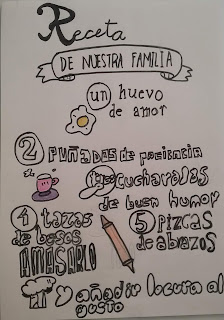 Receta
DE NUESTRA FAMILIA
un huevo
de amor
2 PUÑADAS de paciencia
cucharadas
de buen humor
4 tazas
de besos
5 PIZCAS
de abrazos
AMASARLO
y añadir locura al
gusto